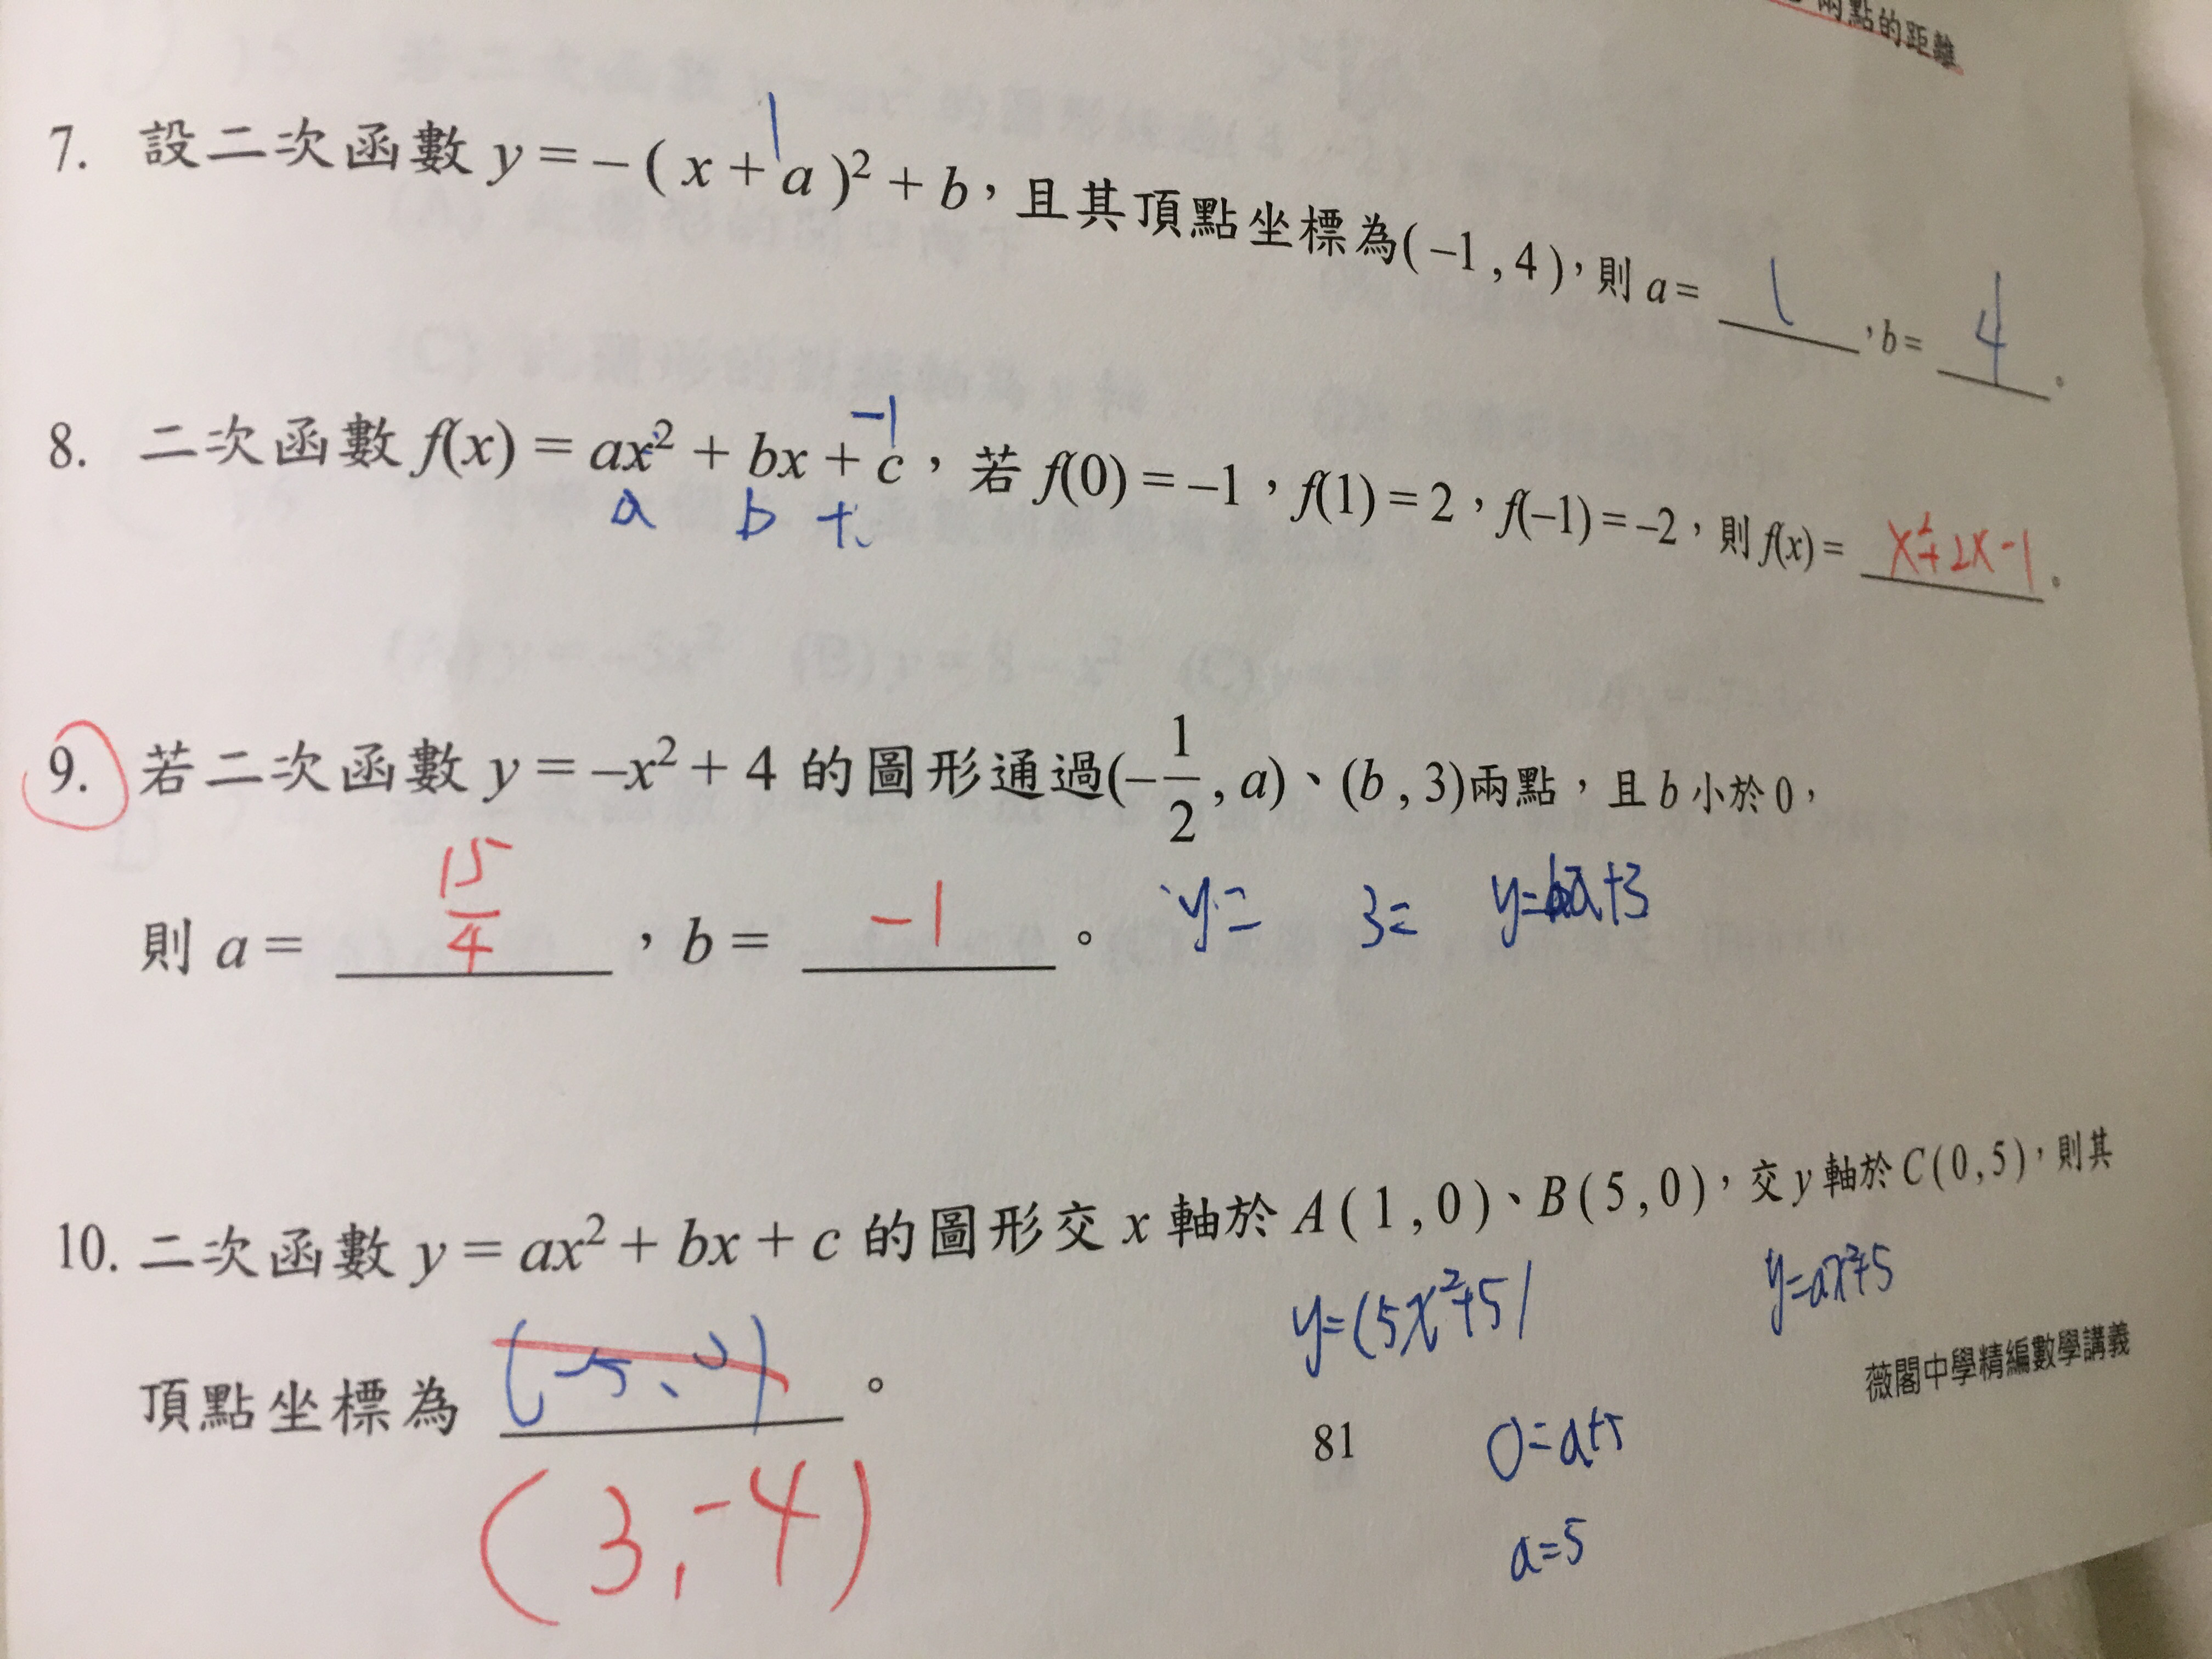 兩點的距離
7. 設二次函數 y = – ( x + a )² + b,且其頂點坐標為( –1 , 4 ),則 a = 1 ,b = 4 。
1
8. 二次函數 f(x) = ax² + bx + c,若 f(0) = –1,f(1) = 2,f(–1) = –2,則 f(x) = x²+2x-1 。
-1
a b +
9. 若二次函數 y = –x² + 4 的圖形通過(–1/2 , a)、(b , 3)兩點,且 b 小於 0,
則 a = 15/4 ,b = -1 。 y= 3=
10. 二次函數 y = ax² + bx + c 的圖形交 x 軸於 A ( 1 , 0 )、B ( 5 , 0 ),交 y 軸於 C ( 0 , 5 ),則其
y=(5x²+5) y=ax²+5
頂點坐標為 。
(3,-4)
薇閣中學精編數學講義
81
0=a+5
a=5